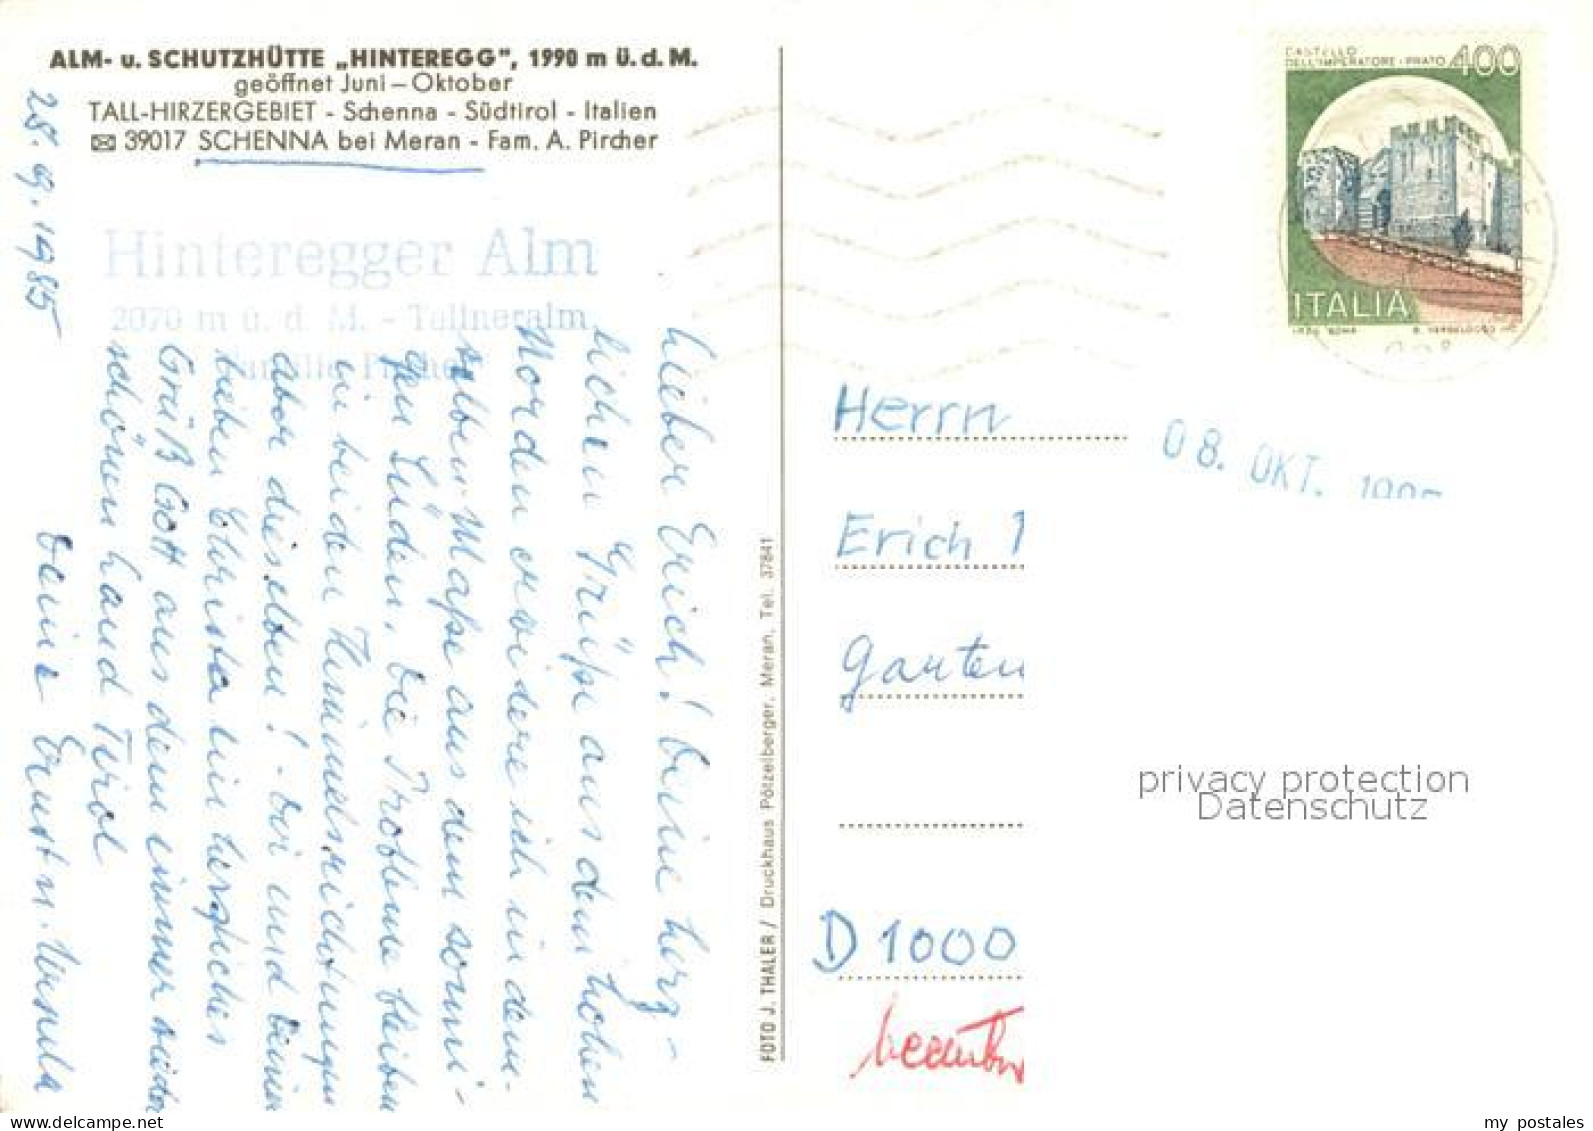 ALM- u. SCHUTZHÜTTE „HINTEREGG", 1990 m ü. d. M.
geöffnet Juni – Oktober
TALL-HIRZERGEBIET - Schenna - Südtirol - Italien
✉ 39017 SCHENNA bei Meran - Fam. A. Pircher
28. 9. 1985
Hinteregger Alm
2070 m ü. d. M. - Tallneralm
Familie Pircher
Lieber Erich! Deine herz-
lichen Grüße aus dem hohen
Norden erwidere ich in dem-
selben Maße aus dem sonni-
gen Süden. Die Probleme bleiben
in beiden Himmelsrichtungen
aber dieselben! - Dir und Deiner
lieben Christa ein herzliches
Grüß Gott aus dem immer wieder
schönen Land Tirol
Deine Ernst u. Ursula
FOTO J. THALER / Druckhaus Pötzelberger, Meran, Tel. 37841
CASTELLO
DELL'IMPERATORE - PRATO 400
ITALIA
Herrn
08. OKT.
Erich
Garten
D 1000
privacy protection
Datenschutz
my_postales